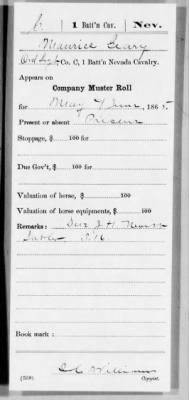 1 Batt'n Cav. Nev.
Maurice Leary
Co. C, 1 Batt'n Nevada Cavalry.
Appears on
Company Muster Roll
for May & June, 1865
Present or absent Present
Stoppage, $ 100 for
Due Gov't, $ 100 for
Valuation of horse, $ 100
Valuation of horse equipments, $ 100
Remarks: Due J. H.
Book mark:
(358) Copyist.